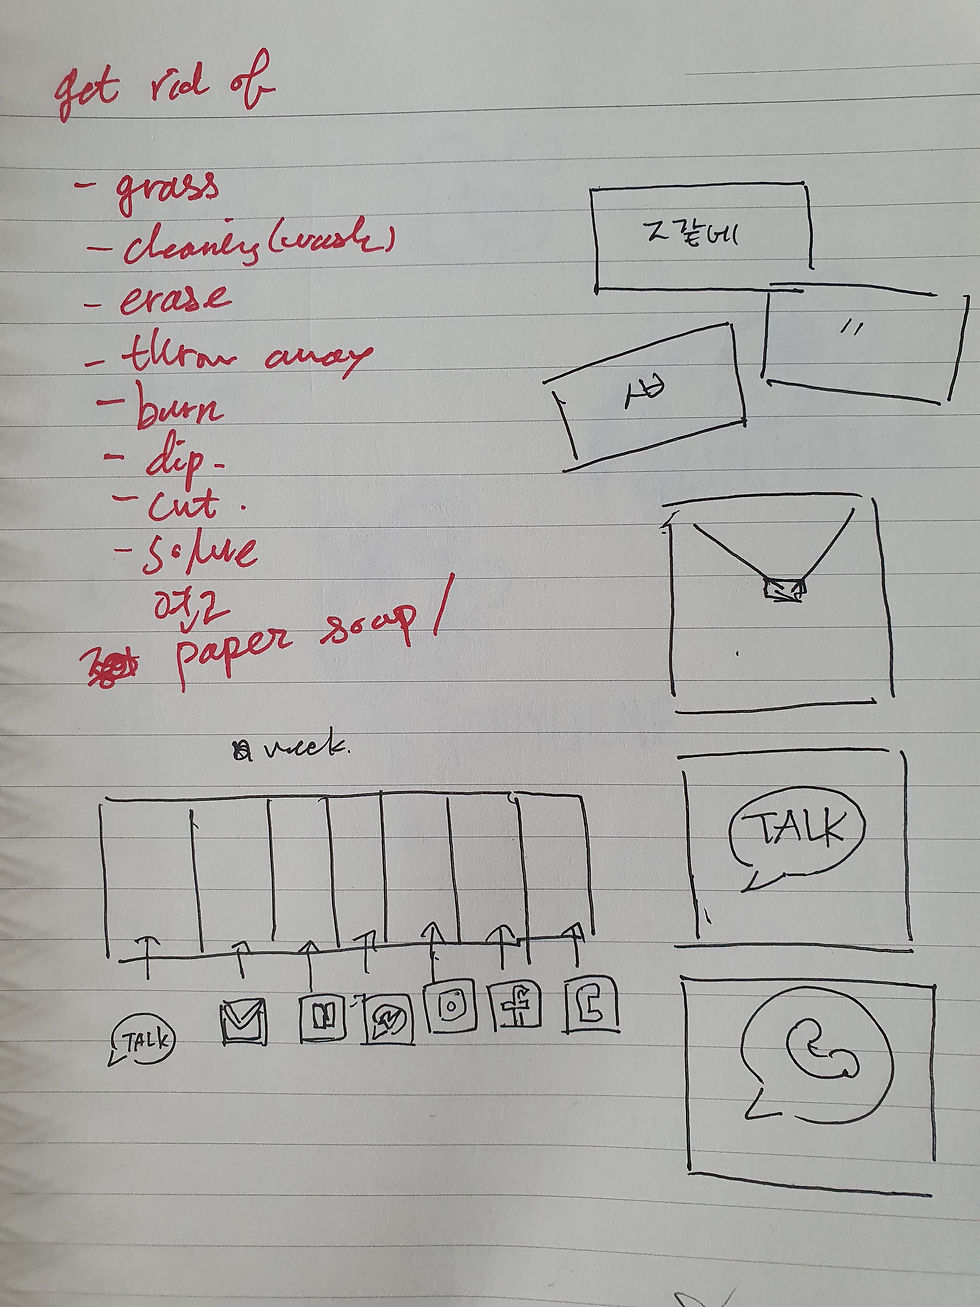 get rid of
- grass
- cleaning (wash)
- erase
- throw away
- burn
- dip -
- cut .
- solve
paper soap /
a week.
TALK
TALK